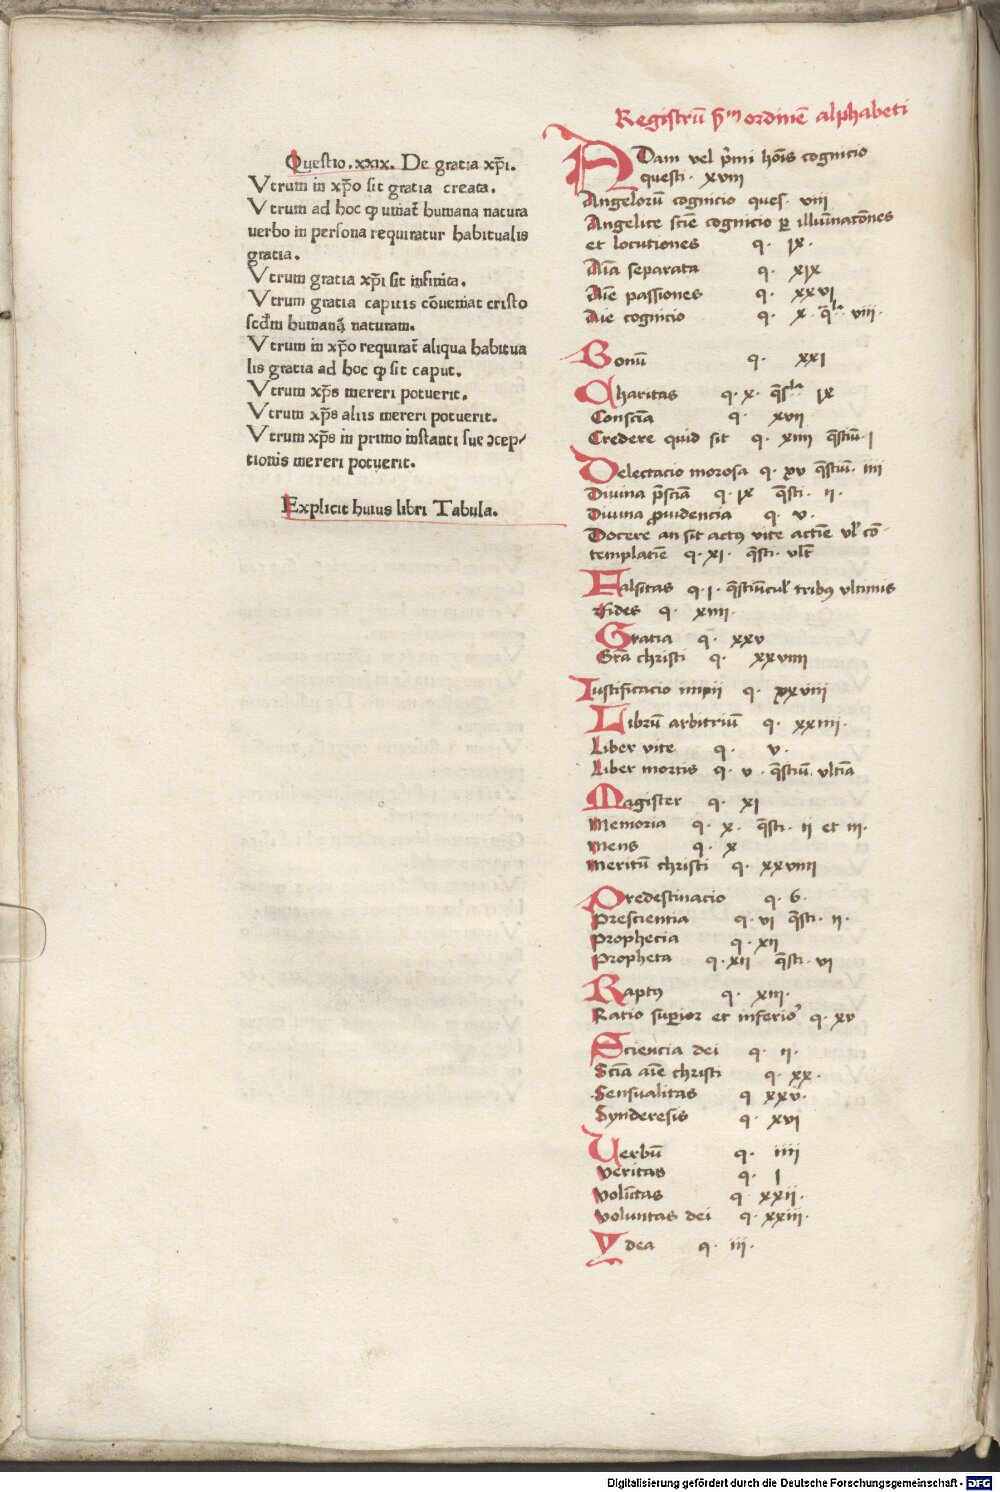 Questio .xxix. De gratia xp̄i.
Vtrum in xp̄o sit gratia creata.
Vtrum ad hoc ꝙ uniat̄ humana natura
uerbo in persona requiratur habitualis
gratia.
Vtrum gratia xp̄i sit infinita.
Vtrum gratia capitis cōueniat cristo
scd̄m humanā naturam.
Vtrum in xp̄o requirat̄ aliqua habitua
lis gratia ad hoc ꝙ sit caput.
Vtrum xp̄s mereri potuerit.
Vtrum xp̄s aliis mereri potuerit.
Vtrum xp̄s in primo instanti sue ↄcep/
tionis mereri potuerit.
Explicit huius libri Tabula.
Registrū ẜm ordinē alphabeti
ADam vel p̄mi hoīs cognicio
questi· xviii
Angelorū cognicio ques· viii
Angelice sciē cognicio per illuīnacōnes
et locutiones q· ix·
Aīa separata q· xix
Aīe passiones q· xxvi
Aīe cognicio q· x· q̄la viii·
Bonū q· xxi
Charitas q· x· q̄sla ix
Consciā q· xvii
Credere quid sit q· xiiii q̄stiū· i
Delectacio morosa q· xv q̄stiū· iiii
Divina p̄sciā q· ix q̄sti· ii·
Divina ꝓuidencia q· v·
Docere an sit actꝰ vite actiē vl̕ cō-
templatiē q· xi· q̄sti· vlt̄
Falsitas q· i· q̄stiūcul̕ tribꝰ vltimis
Fides q· xiiii·
Gratia q· xxv
Grā christi q· xxviiii
Iustificacio impii q· xxviii
Librū arbitriū q· xxiiii·
Liber vite q· v·
Liber mortis q· v· q̄stiū· vltīa
Magister q· xi
Memoria q· x· q̄sti· ii et iii·
Mens q· x
Meritū christi q· xxviiii
Predestinacio q· 6·
Prescientia q· vi q̄sti· ii·
Prophecia q· xii
Propheta q· xii q̄sti· vi
Raptꝰ q· xiii·
Ratio superior et inferior̕ q· xv
Sciencia dei q· ii·
Sciā aīe christi q· xx·
Sensualitas q xxv·
Synderesis q· xvi
Verbū q· iiii
Veritas q· i
Volūtas q xxii·
Voluntas dei q· xxiii·
Ydea q· iii·
Digitalisierung gefördert durch die Deutsche Forschungsgemeinschaft - DFG